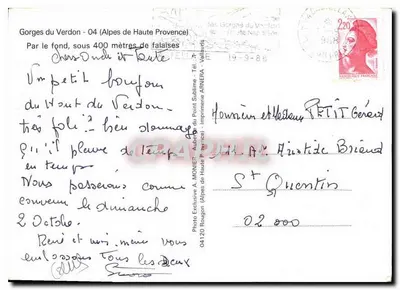 Gorges du Verdon - 04 (Alpes de Haute Provence)
Par le fond, sous 400 mètres de falaises
chers oncle et Tante
Un petit bonjour
du Haut du Verdon
très joli - bien dommage
qu'il pleuve de temps
en temps
Nous passerons comme
convenu le dimanche
2 Octobre.
René et moi-même vous
embrassons Tous les deux
Photo Exclusive A. MONIER - Auberge du Point Sublime - Tél.
04120 Rougon (Alpes de Haute Provence) - Imprimerie ARNERA - Vallauris
19-9-88
2,20
Monsieur et Madame PETIT Gérard
11 A Aristide Briand
St Quentin
02000